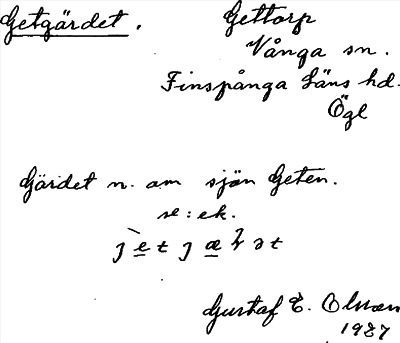 Getgärdet. Gettorp
Vånga sn.
Finspånga Läns hd.
Ögl
Gärdet n. om sjön Geten.
se: ek.
Gustaf E. Olsson
1927